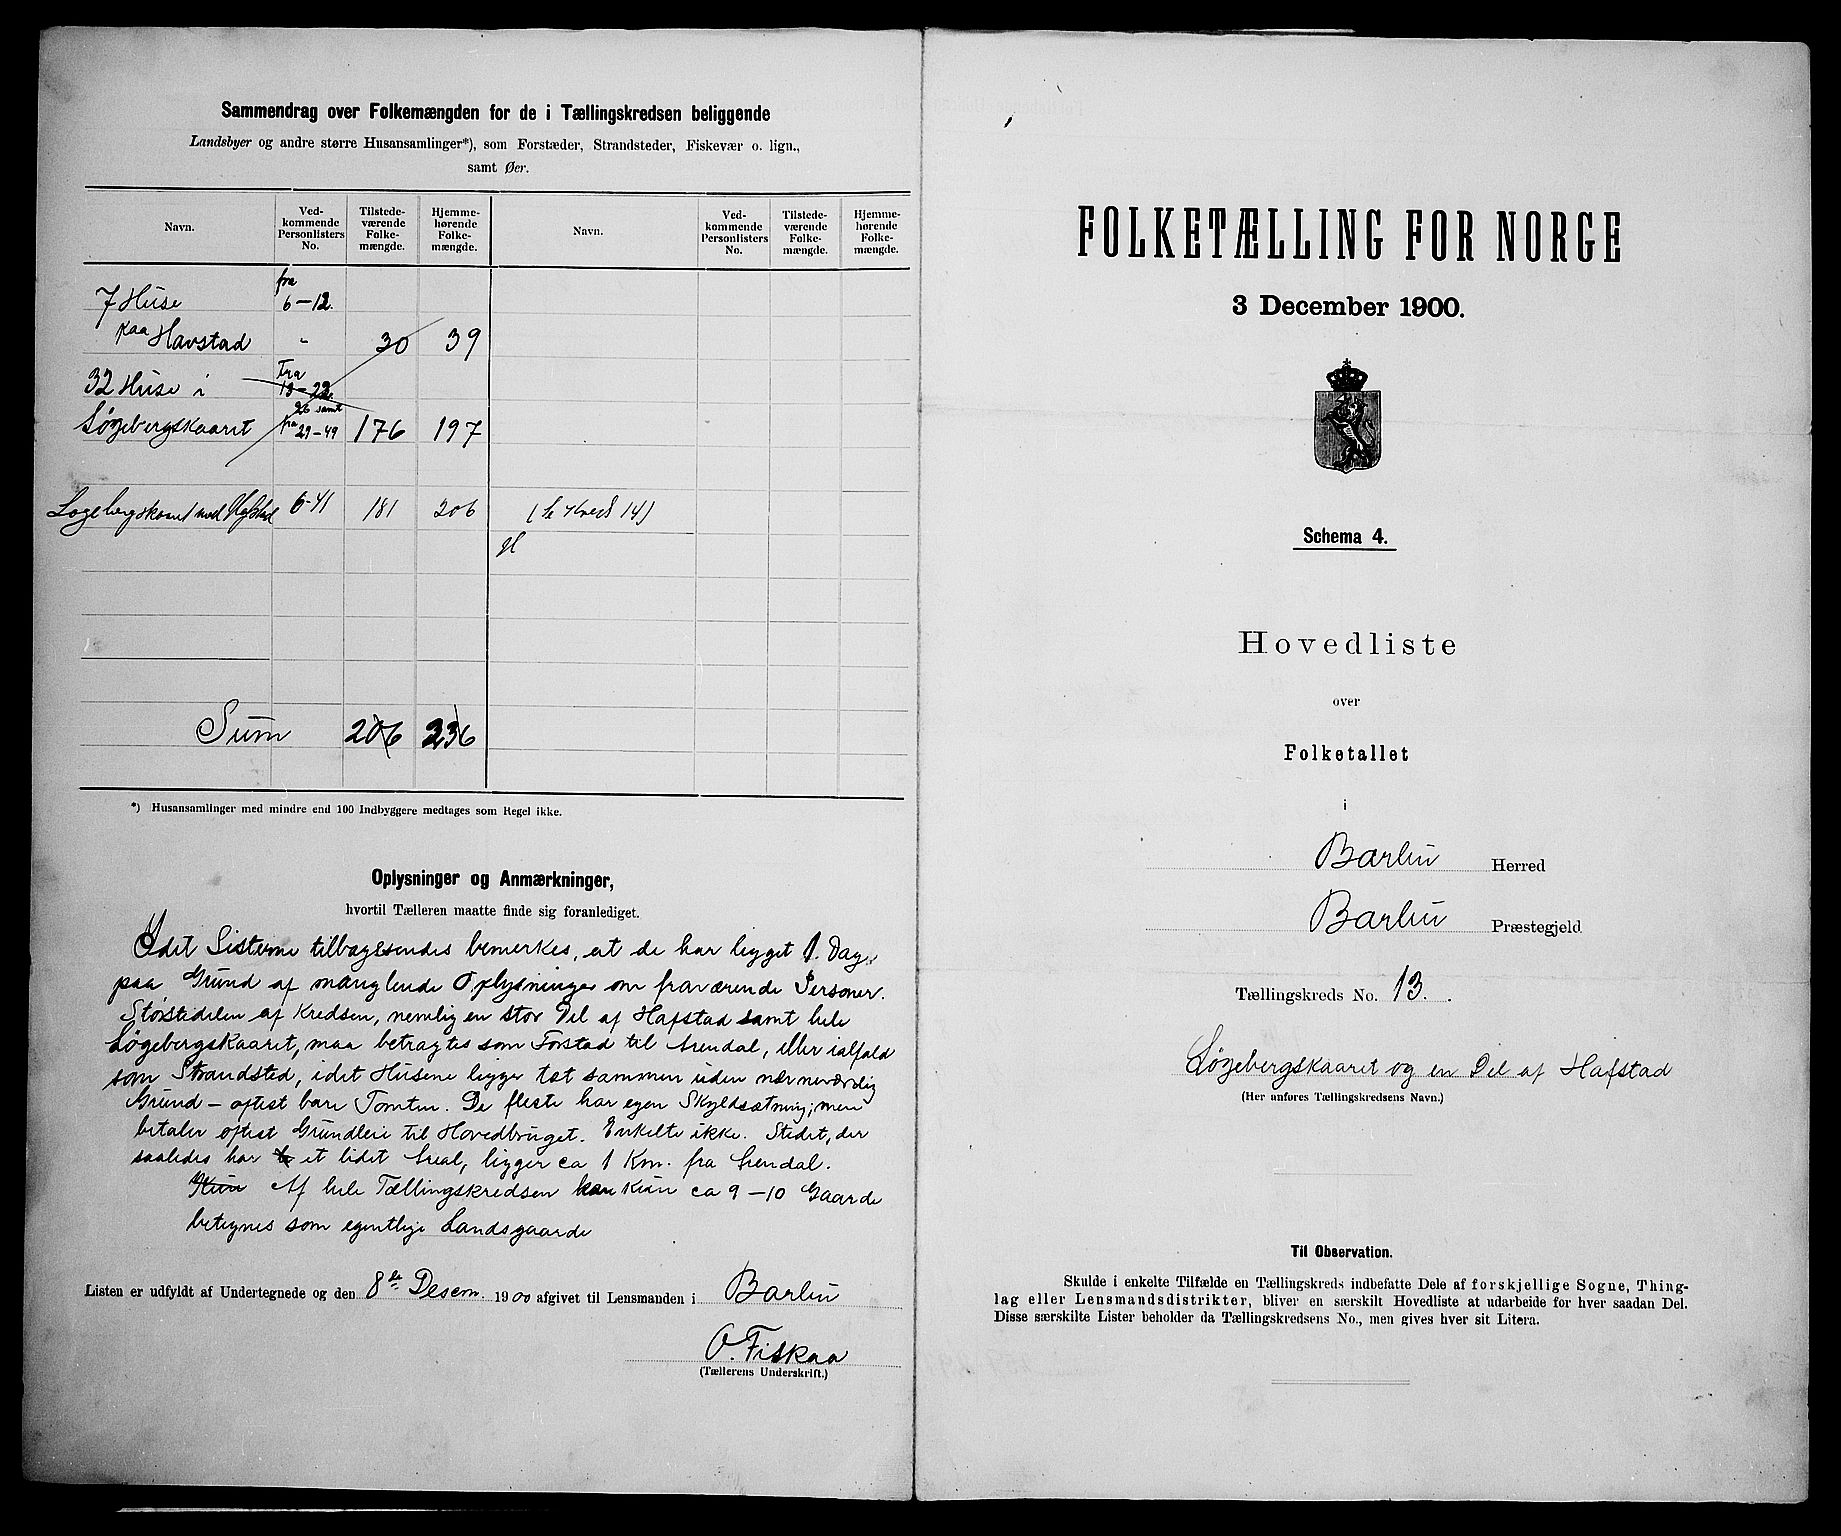 Sammendrag over Folkemængden for de i Tællingskredsen beliggende
Landsbyer og andre større Husansamlinger*), som Forstæder, Strandsteder, Fiskevær o. lign.,
samt Øer.
Navn. Ved-kommende Personlisters No. Tilstede-værende Folke-mængde. Hjemme-hørende Folke-mængde. Navn. Ved-kommende Personlisters No. Tilstede-værende Folke-mængde. Hjemme-hørende Folke-mængde.
7 Huse fra 6-12.
paa Havstad " 30 39
32 Huse i Fra 13-22
26 samt
Løgebergskaaret fra 29-49 176 197
Løgebergskaaret med Hafstad 6-41 181 206 (se Kreds 14)
Sum 206 236
*) Husansamlinger med mindre end 100 Indbyggere medtages som Regel ikke.
Oplysninger og Anmærkninger,
hvortil Tælleren maatte finde sig foranlediget.
Idet Listerne tilbagesendes bemerkes, at de har ligget 1. Dag
paa Grund af manglende Oplysninger om fraværende Personer.
Størstedelen af Kredsen, nemlig en stor Del af Hafstad samt hele
Løgebergskaaret, maa betragtes som Forstad til Arendal, eller ialfald
som Strandsted, idet Husene ligger tæt sammen uden nævneværdig
Grund – oftest bare Tomten. De fleste har egen Skyldsætning; men
betaler oftest Grundleie til Hovedbruget. Enkelte ikke. Stedet, der
saaledes har et lidet Areal, ligger ca 1 Km. fra Arendal.
Kun Af hele Tællingskredsen kan kun ca 9-10 Gaarde
betegnes som egentlige Landsgaarde
Listen er udfyldt af Undertegnede og den 8de Desem. 1900 afgivet til Lensmanden i Barbu
O. Fiskaa
(Tællerens Underskrift.)
FOLKETÆLLING FOR NORGE
3 December 1900.
Schema 4.
Hovedliste
over
Folketallet
i
Barbu Herred
Barbu Præstegjeld
Tællingskreds No. 13.
Løgebergskaaret og en Del af Hafstad
(Her anføres Tællingskredsens Navn.)
Til Observation.
Skulde i enkelte Tilfælde en Tællingskreds indbefatte Dele af forskjellige Sogne, Thing-
lag eller Lensmandsdistrikter, bliver en særskilt Hovedliste at udarbeide for hver saadan Del.
Disse særskilte Lister beholder da Tællingskredsens No., men gives hver sit Litera.